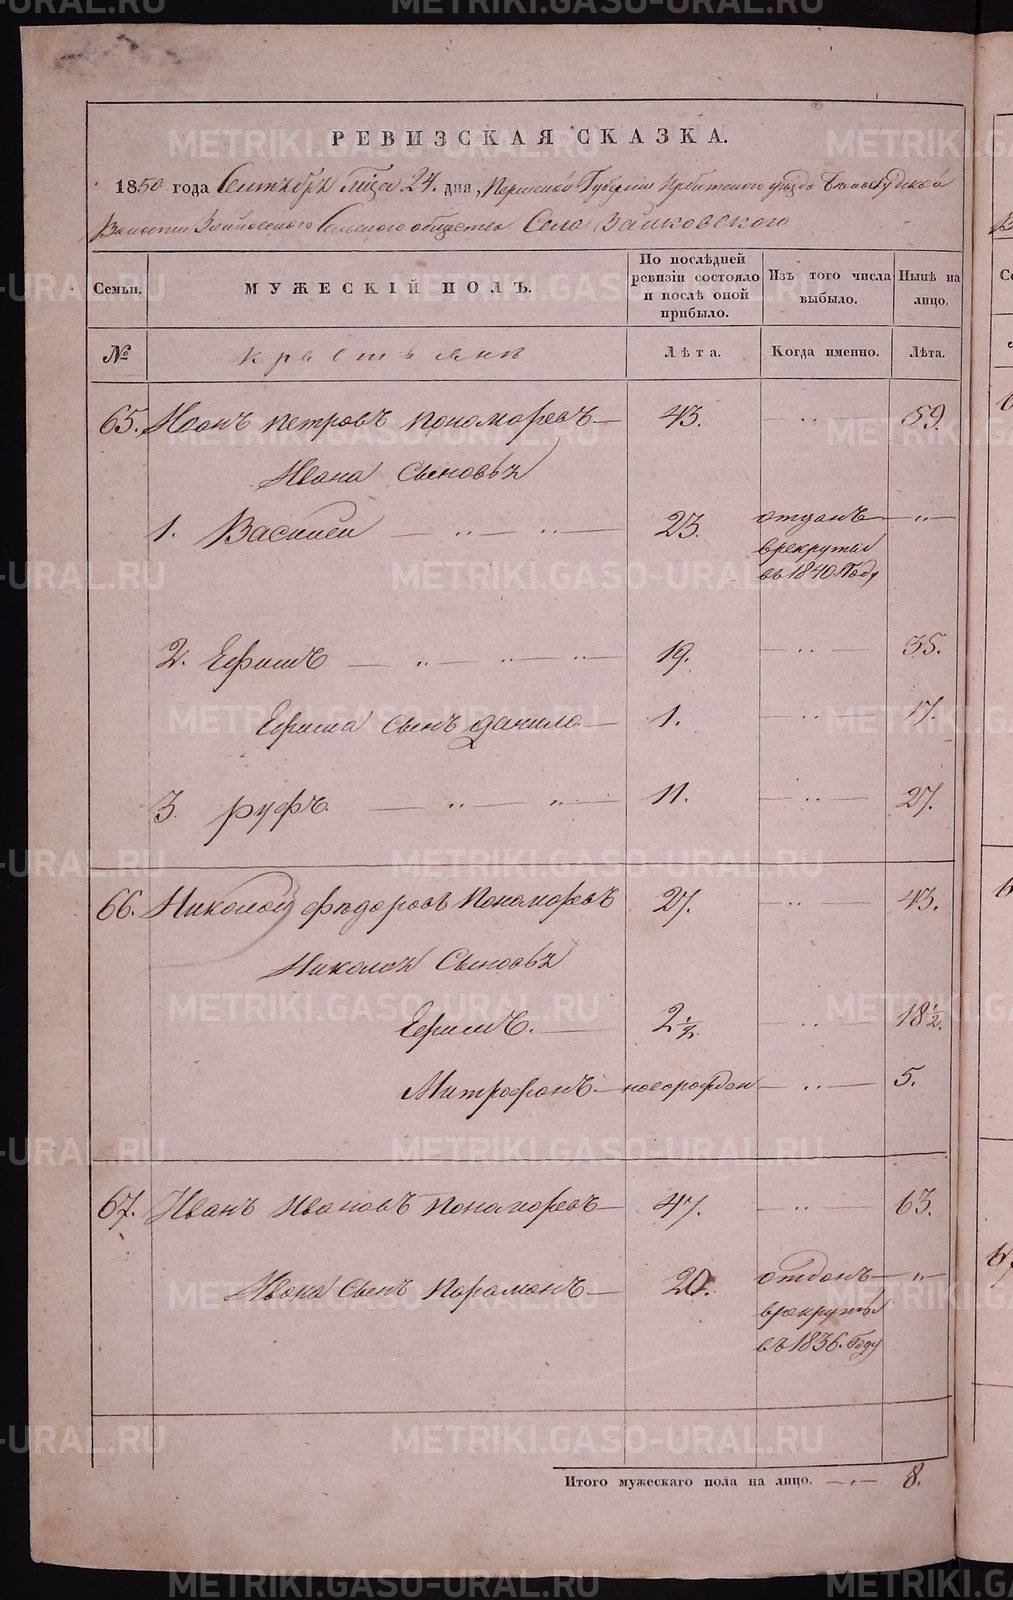 РЕВИЗСКАЯ СКАЗКА.
1850 года Сентября Мца 24. дня, Пермской Губернии Ирбитского уезда Белослудской
Волости Зайковского Сельского общества Села Зайковского
Семьи. МУЖЕСКІЙ ПОЛЪ. По послѣдней ревизіи состояло и послѣ оной прибыло. Изъ того числа выбыло. Нынѣ на лицо.
№ крестьяне Лѣта. Когда именно. Лѣта.
65. Иванъ Петровъ Пономаревъ 43. 59
Ивана Сыновья
1. Василей 23. отданъ
врекруты
въ 1840 Году
2. Ефимъ 19. 35.
Ефима сынъ Данило 1. 17.
3. Руфъ 11. 27.
66. Николай Федоровъ Пономаревъ 27. 43.
Николая Сыновья
Ефимъ. 2 1/2. 18 1/2.
Митрофанъ новорожден 5.
67. Иванъ Ивановъ Пономаревъ 47. 63.
Ивана Сынъ Парамонъ 20. отданъ
врекруты
въ 1836. Году
Итого мужескаго пола на лицо. 8.
METRIKI.GASO-URAL.RU